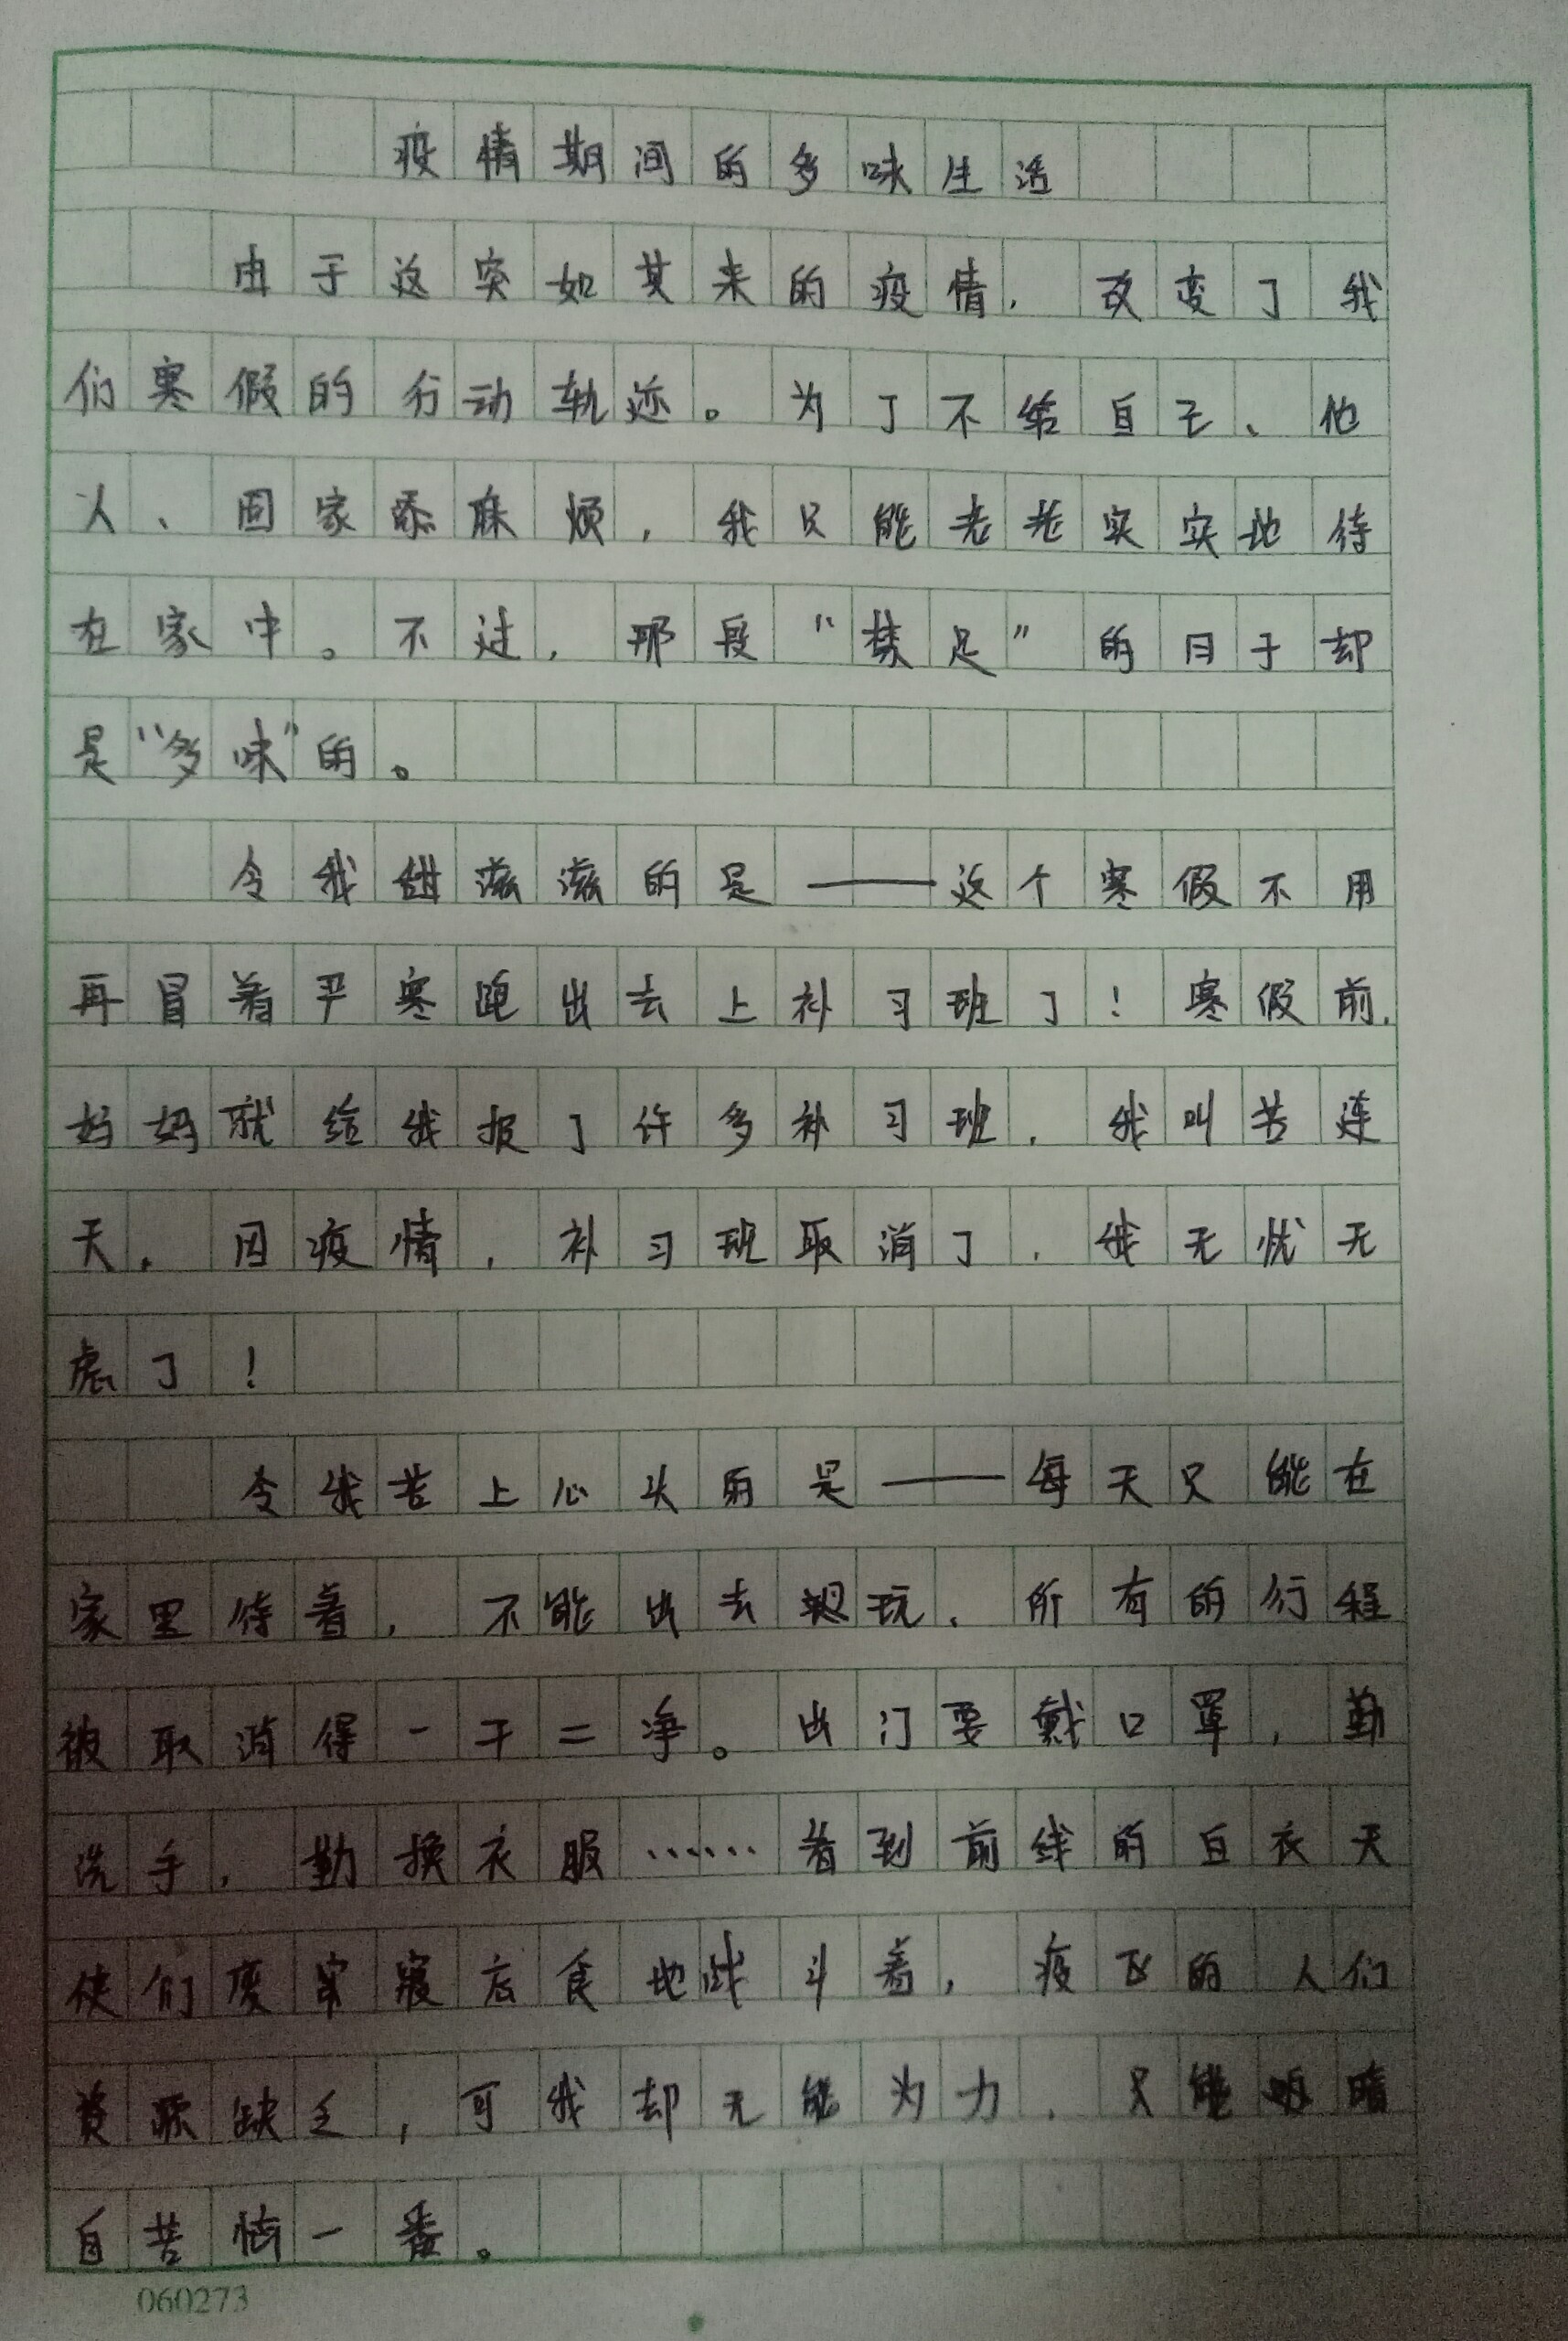 疫情期间的多味生活
由于这突如其来的疫情，改变了我
们寒假的行动轨迹。为了不给自己、他
人、国家添麻烦，我只能老老实实地待
在家中。不过，那段“禁足”的日子却
是“多味”的。
令我甜滋滋的是——这个寒假不用
再冒着严寒跑出去上补习班了！寒假前，
妈妈就给我报了许多补习班，我叫苦连
天。因疫情，补习班取消了，我无忧无
虑了！
令我苦上心头的是——每天只能在
家里待着，不能出去游玩，所有的行程
被取消得一干二净。出门要戴口罩，勤
洗手，勤换衣服……看到前线的白衣天
使们废寝忘食地战斗着，疫区的人们
资源缺乏，可我却无能为力，只能暗
自苦恼一番。
060273